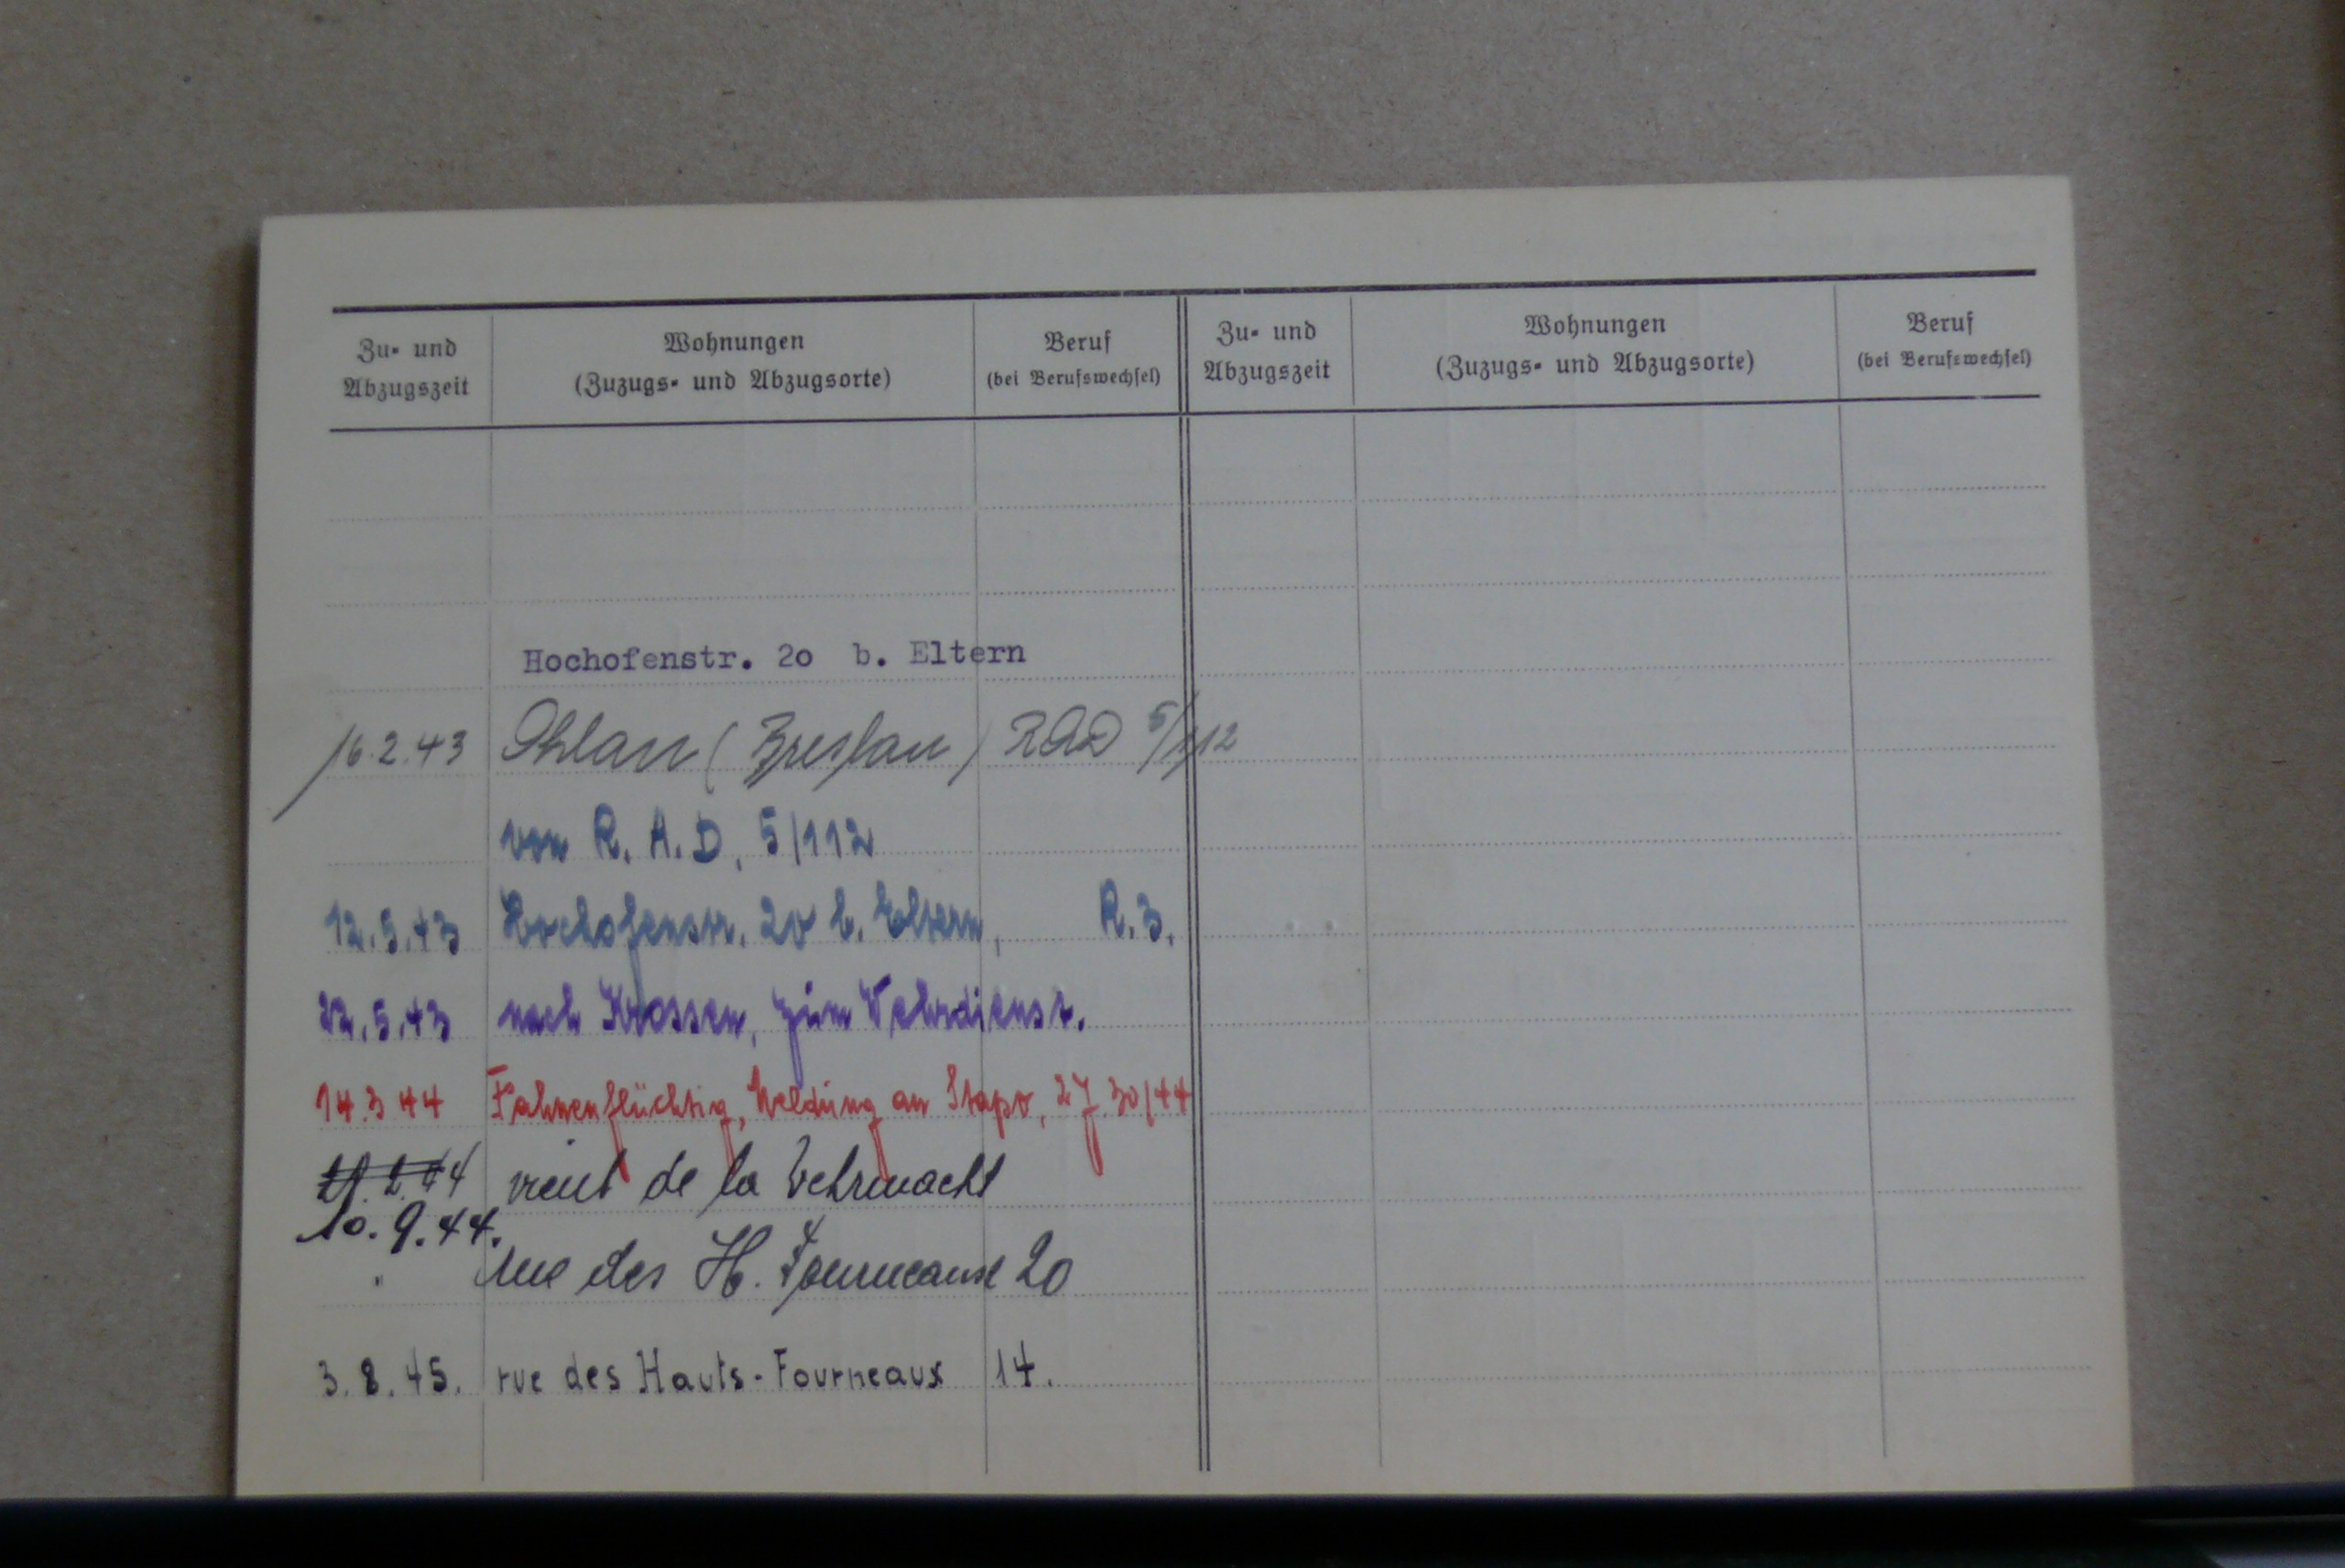 Zu- und Abzugszeit
Wohnungen (Zuzugs- und Abzugsorte)
Beruf (bei Berufswechsel)
Zu- und Abzugszeit
Wohnungen (Zuzugs- und Abzugsorte)
Beruf (bei Berufswechsel)
Hochofenstr. 20 b. Eltern
16.2.43 Ohlau (Breslau) RAD 5/112
von R. A. D. 5/112
12.5.43 Hochofenstr. 20 b. Eltern, R.Z.
22.5.43 nach Krossen, zum Wehrdienst.
14.3 44 Fahnenflüchtig, Meldung an Stapo, 27 30/44
vient de la Wehrmacht
10.9.44.
" Rue des H. Fourneaux 20
3.8.45. rue des Hauts-Fourneaux 14.